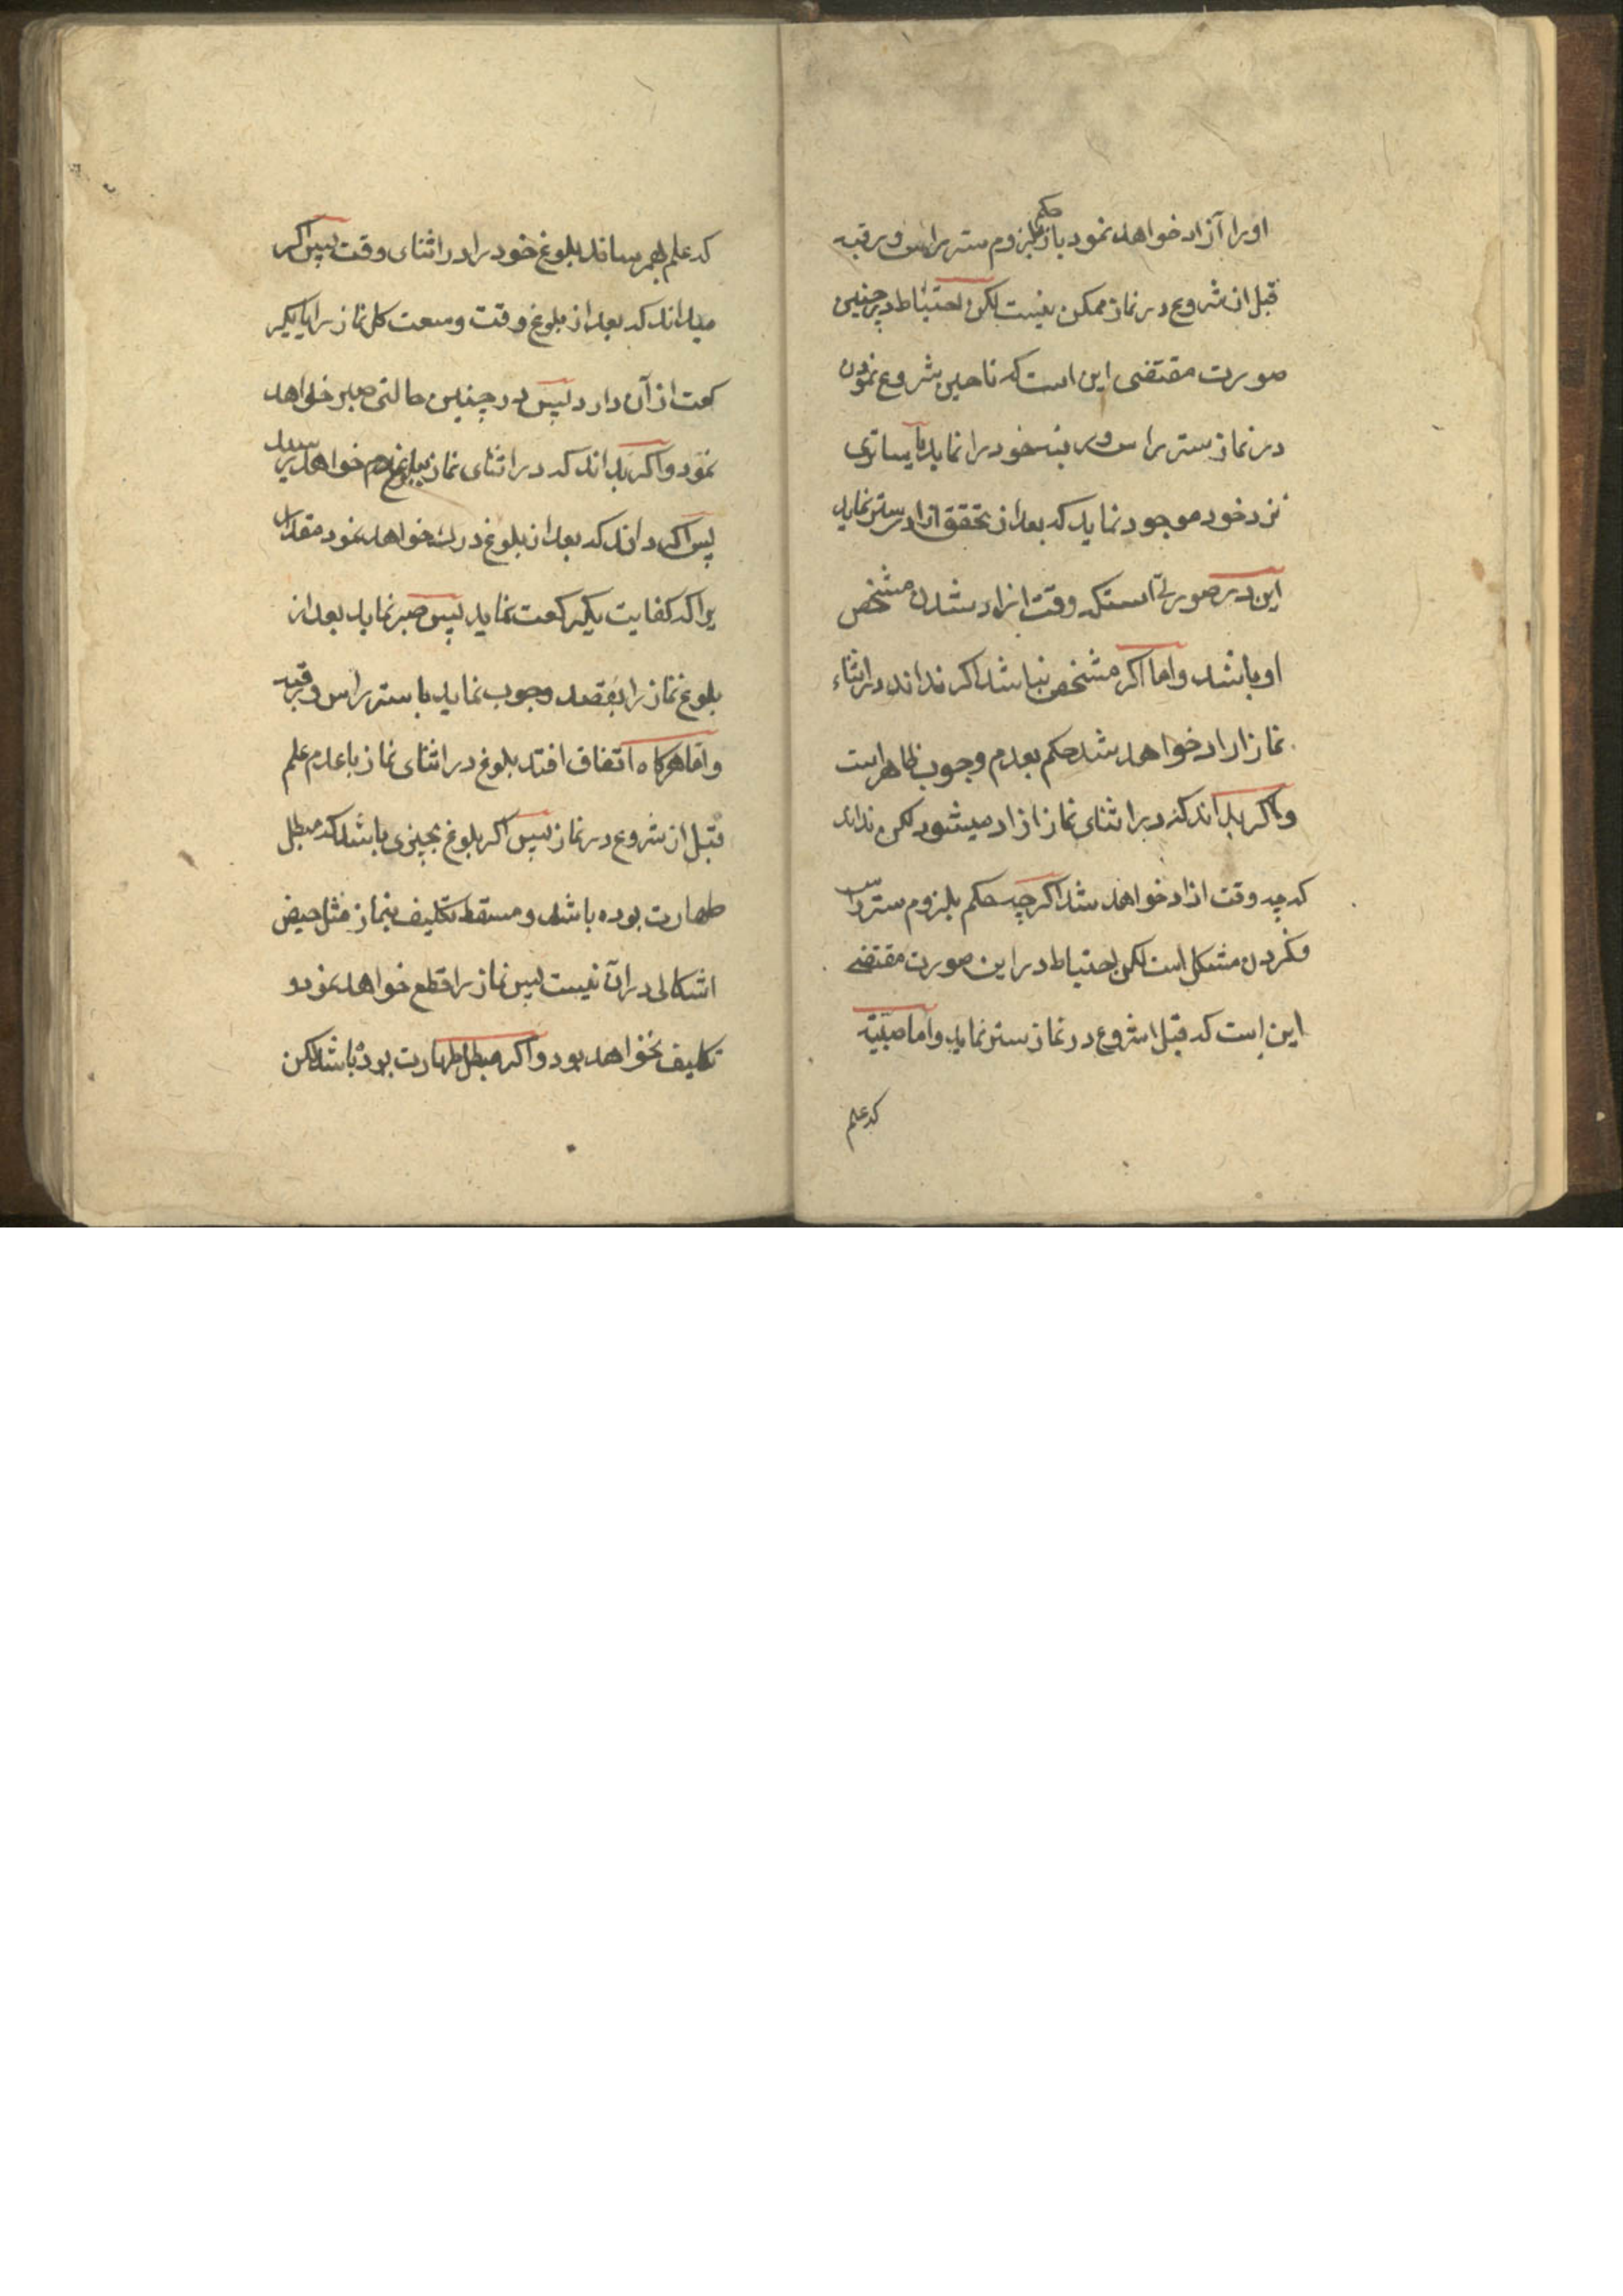 او را آزاد خواهد نمود باز حکم بلزوم ستر راس و رقبه
قبل از شروع در نماز ممکن نیست لکن احتیاط در چنین
صورت مقتضی این است که تا حین شروع نمودن
در نماز ستر راس و رقبه خود را نماید یا ساتری
نزد خود موجود نماید که بعد از تحقق ازاد ستر نماید
این در صورتی است که وقت ازاد شدن مشخص
او باشد و اما اگر مشخص نباشد اکر نداند در اثناء
نماز ازاد خواهد شد حکم بعدم وجوب ظاهر است
و اکر بداند که در اثنای نماز ازاد میشود لکن نداند
که چه وقت ازاد خواهد شد اکر چه حکم بلزوم ستر راس
کردن مشکل است لکن احتیاط در این صورت مقتضی
این است که قبل از شروع در نماز ستر نماید و اما صبیه
که علم
که علم بهم رساند بلوغ خود را در اثنای وقت پس اکر
میداند که بعد از بلوغ وقت وسعت کل نماز را یا یکر
کعت از آن دارد پس در چنین حالتی صبر خواهد
نمود و اکر بداند که در اثنای نماز ببلوغ خواهد رسید
پس اکر داند که بعد از بلوغ درک خواهد نمود مقدار
یرا که کفایت یکر کعت نماید پس صبر نماید بعد از
بلوغ نماز را بقصد وجوب نماید با ستر راس و رقبه
و اما هرکاه اتفاق افتد بلوغ در اثنای نماز با عدم علم
قبل از شروع در نماز پس اکر بلوغ بچیزی باشد که مبطل
طهارت بوده باشد و مسقط تکلیف بنماز مثل حیض
اشکالی در ان نیست پس نماز را قطع خواهد نمود و
تکلیف نخواهد بود و اکر مبطل طهارت بوده باشد لکن